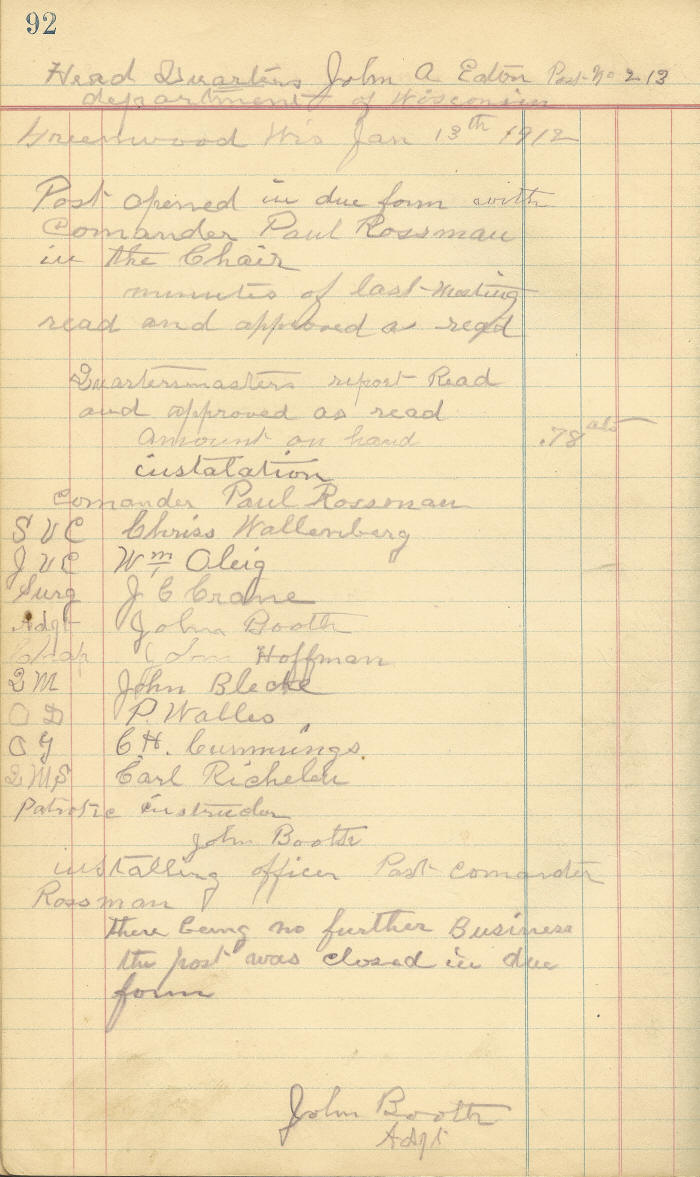 92
Head Quarters John A Eaton Post No 213
department of Wisconsin
Greenwood Wis Jan 13th 1912
Post opened in due form with
Comander Paul Rossman
in the Chair
minutes of last meeting
read and approved as read
Quartersmasters report Read
and approved as read
amount on hand .78 cts
instalation
Comander Paul Rossman
S V C Chriss Wallenberg
J V C Wm Oleig
Surg J C Crane
Adgt John Booth
Chap Hoffman
Q M John Blecke
O D P. Walles
O G C H. Cummings
Q M S Carl Richelen
Patriotic instructor
John Booth
installing officer Past Comander
Rossman
there being no further Business
the post was closed in due
form
John Booth
Adgt